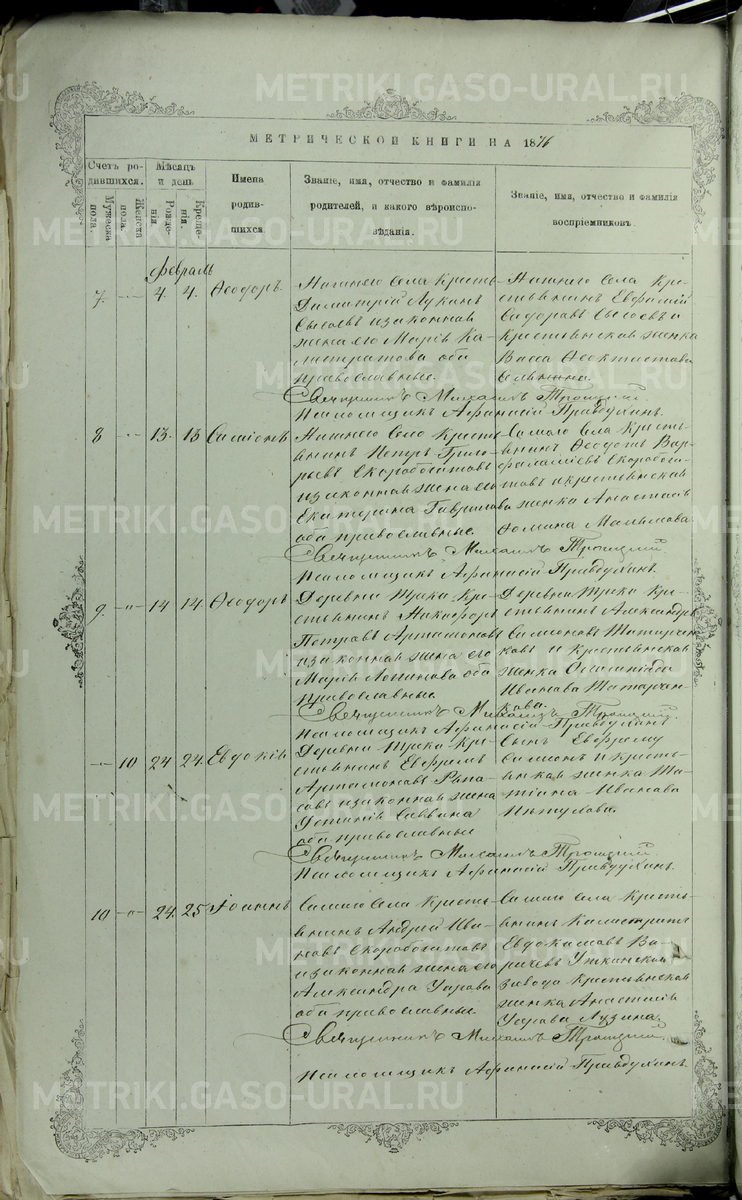 METRIKI.GASO-URAL.RU
МЕТРИЧЕСКОЙ КНИГИ НА 1876
Счетъ ро-
дившихся.
Мужеска
пола.
Женска
пола.
Мѣсяцъ
и день
Рожде-
нія
Креще-
нія.
Имена
родив-
шихся
Званіе, имя, отчество и фамилія
родителей, и какого вѣроиспо-
вѣданія.
Званіе, имя, отчество и фамилія
воспріемниковъ.
Февраль
7. 4. 4. Ѳеодоръ
Димитрій Лукинъ
Сысоевъ и законная
жена его Марія Ка-
листратова оба
православные.
Нашего села Кре-
стьянинъ Евфимій
Сидоровъ Сысоевъ и
Крестьянская женка
Васса Ѳеоктистова
Священникъ Михаилъ Троицкій.
Псаломщикъ Афанасій Правдухинъ.
8 13. 13 Симеонъ
Нашего Села Кресть-
янинъ Петръ Григо-
рьевъ Скоробогатовъ
и законная жена его
Екатерина Гаврилова
оба православные.
Самаго Села Кресть-
янинъ Ѳеодотъ Вар-
фаламеевъ Скоробога-
товъ и крестьянская
женка Анастасія
Ѳомина
Священникъ Михаилъ Троицкій.
Псаломщикъ Афанасій Правдухинъ.
9. 14 14. Ѳеодоръ
Деревни Трека Кре-
стьянинъ Никифоръ
Петровъ Артамоновъ
и законная жена его
Марія Логинова оба
православные.
Деревни Трека Кре-
стьянинъ Александръ
Симеоновъ Татарчен-
ковъ и Крестьянская
женка Олимпіада
Иванова Татарчен-
кова.
Священникъ Михаилъ Троицкій.
Псаломщикъ Афанасій Правдухинъ
10 24 24. Евдокія
Деревни Трека Кре-
стьянинъ Евфремъ
Артамоновъ
и законная жена
Саввина
оба православные
Сынъ Евфрему
Симеонъ и кресть-
янская женка Та-
тіана Иванова
Священникъ Михаилъ Троицкій
Псаломщикъ Афанасій Правдухинъ.
10 24. 25 Іоаннъ
Самаго Села Кресть-
янинъ Андрей Ива-
новъ Скоробогатовъ
и законная жена его
Александра Уарова
оба православные.
Самаго села Кресть-
янинъ Калистратъ
Евдокимовъ
Уткинскаго
завода Крестьянская
женка Анастасія
Уарова Лузина.
Священникъ Михаилъ Троицкій.
Псаломщикъ Афанасій Правдухинъ.